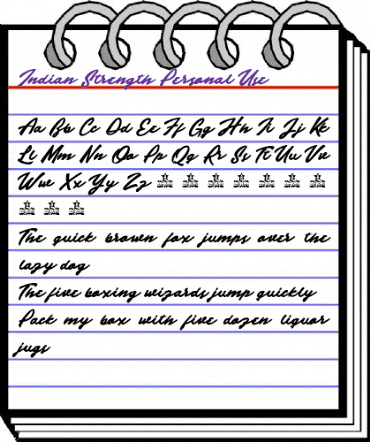 Indian Strength Personal Use
Aa Bb Cc Dd Ee Ff Gg Hh Ii Jj Kk
Ll Mm Nn Oo Pp Qq Rr Ss Tt Uu Vv
Ww Xx Yy Zz
The quick brown fox jumps over the
lazy dog
The five boxing wizards jump quickly
Pack my box with five dozen liquor
jugs